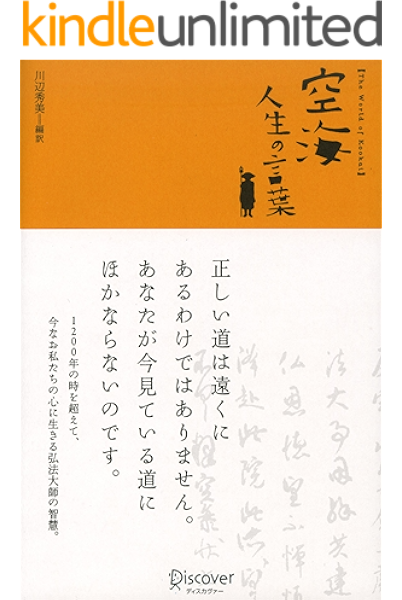 kindleunlimited
【The World of Kookai】
空海
人生の言葉
川辺秀美＝編訳
正しい道は遠くに
あるわけではありません。
あなたが今見ている道に
ほかならないのです。
1200年の時を超えて、
今なお私たちの心に生きる弘法大師の智慧。
Discover
ディスカヴァー